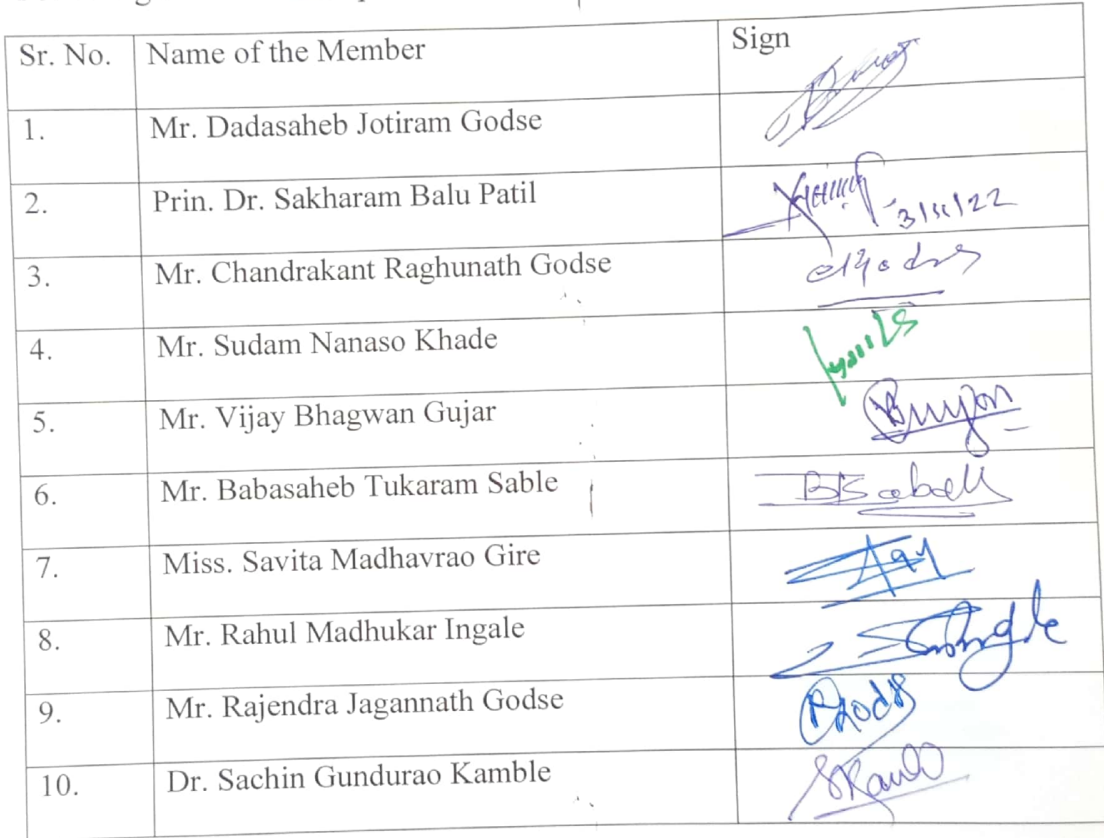 Sr. No. Name of the Member Sign
1. Mr. Dadasaheb Jotiram Godse
2. Prin. Dr. Sakharam Balu Patil 3/11/22
3. Mr. Chandrakant Raghunath Godse
4. Mr. Sudam Nanaso Khade
5. Mr. Vijay Bhagwan Gujar
6. Mr. Babasaheb Tukaram Sable
7. Miss. Savita Madhavrao Gire
8. Mr. Rahul Madhukar Ingale
9. Mr. Rajendra Jagannath Godse
10. Dr. Sachin Gundurao Kamble